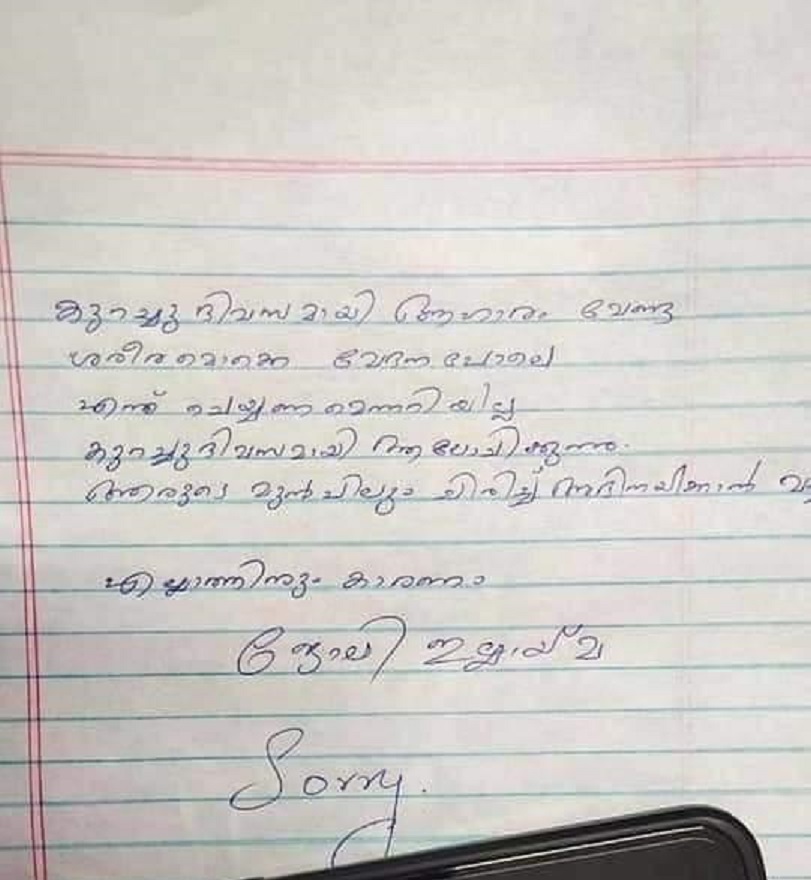 കുറച്ചു ദിവസമായി ആഹാരം വേണ്ട
ശരീരമൊക്കെ വേദന പോലെ
എന്ത് ചെയ്യണമെന്നറിയില്ല
കുറച്ചു ദിവസമായി ആലോചിക്കുന്നു.
ആരുടെ മുൻപിലും ചിരിച്ച് അഭിനയിക്കാൻ
എല്ലാത്തിനും കാരണം
ജോലി ഇല്ലായ്മ
Sorry.